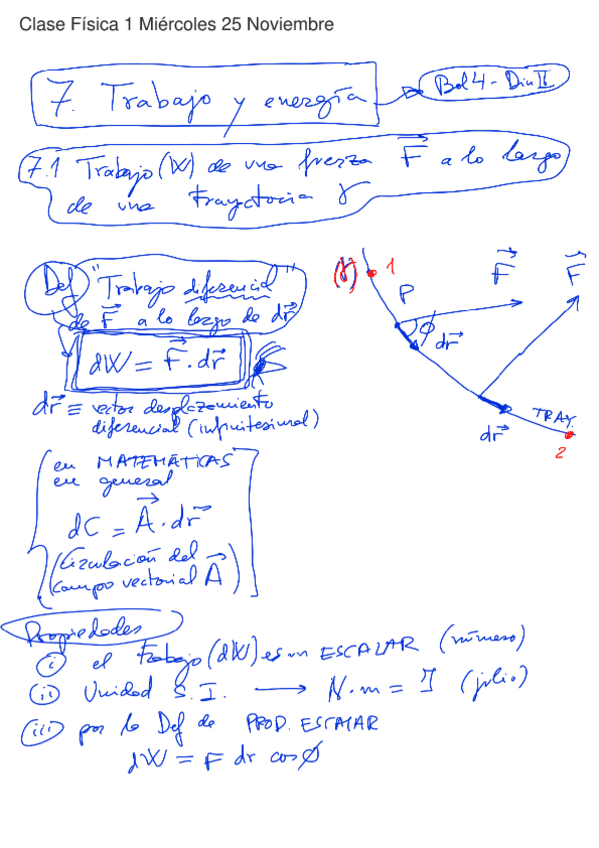 Clase Física 1 Miércoles 25 Noviembre
7. Trabajo y energía
Bol 4 - Din II
7.1 Trabajo (W) de una fuerza F⃗ a lo largo
de una trayectoria γ
Def "Trabajo diferencial"
de F⃗ a lo largo de dr⃗
dW = F⃗ · dr⃗
dr⃗ ≡ vector desplazamiento
diferencial (infinitesimal)
(γ) 1
P
F⃗
F⃗
φ
dr⃗
TRAY.
dr⃗
2
en MATEMÁTICAS
en general
dC = A⃗ · dr⃗
(Circulación del
campo vectorial A⃗)
Propiedades
(i) el trabajo (dW) es un ESCALAR (número)
(ii) Unidad S.I. → N·m = J (julio)
(iii) por la Def de PROD. ESCALAR
dW = F dr cos φ